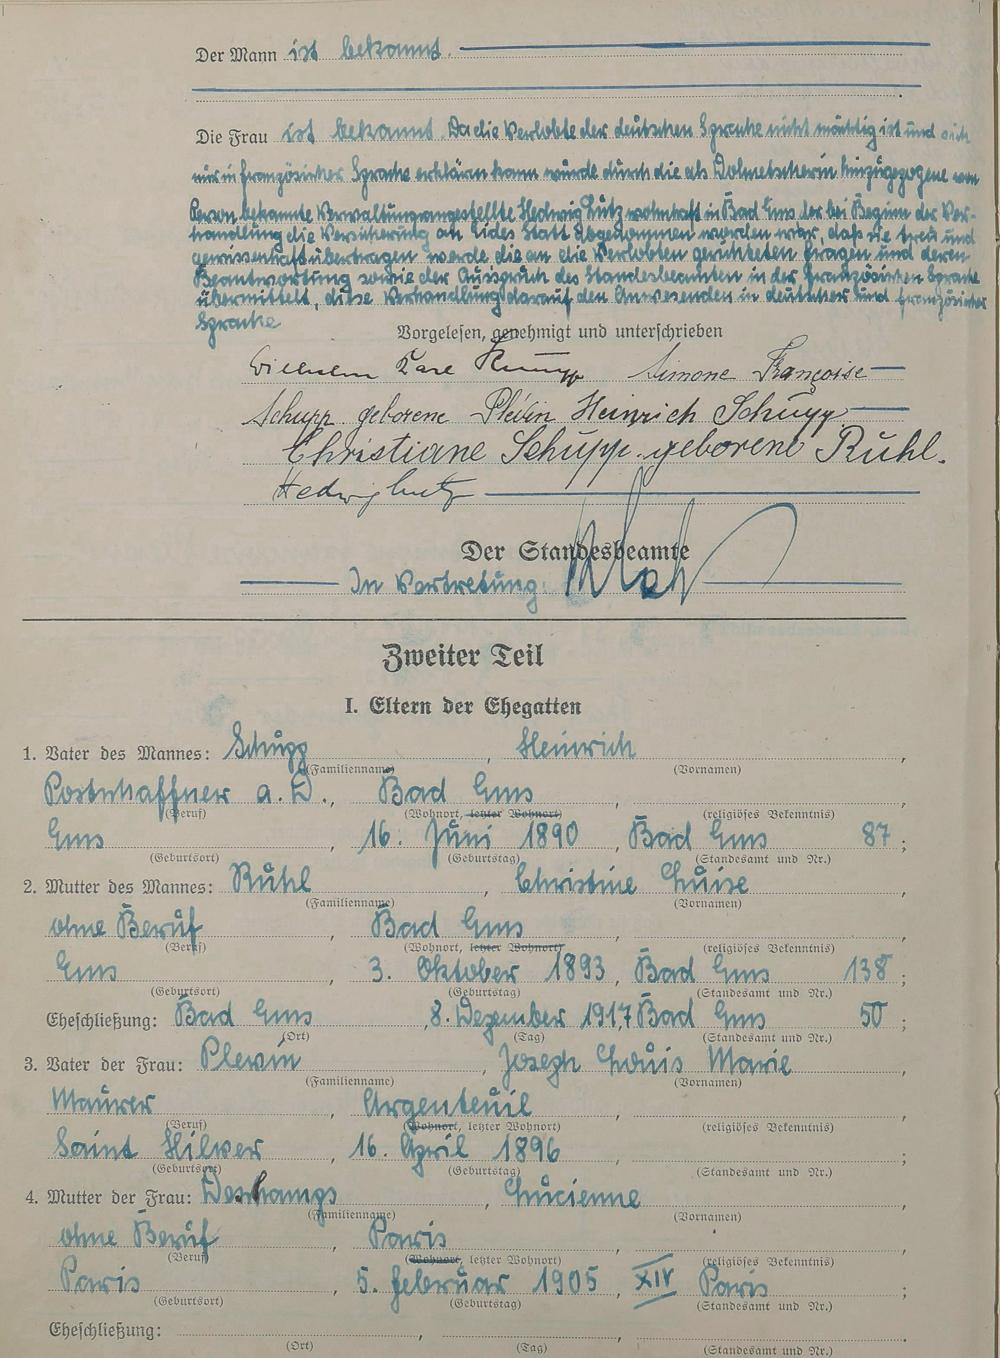 Der Mann ist bekannt.
Die Frau ist bekannt. Da die Verlobte der deutschen Sprache nicht mächtig ist und sich
nur in französischer Sprache erklären kann wurde durch die als Dolmetscherin hinzugezogene von
Person bekannte Verwaltungsangestellte Hedwig Lutz wohnhaft in Bad Ems der bei Beginn der Ver-
handlung die Versicherung an Eides Statt abgenommen worden war, daß sie treu und
gewissenhaft übertragen werde die an die Verlobten gerichteten Fragen und deren
Beantwortung sowie der Ausspruch des Standesbeamten in der französischen Sprache
übermittelt, diese Verhandlung darauf den Anwesenden in deutscher und französischer
Sprache
Vorgelesen, genehmigt und unterschrieben
Wilhelm Karl Simone Françoise
Schupp geborene Plévin Heinrich Schupp
Christiane Schupp geborene Rühl.
Hedwig Lutz
Der Standesbeamte
In Vertretung:
Zweiter Teil
I. Eltern der Ehegatten
1. Vater des Mannes: Schupp, Heinrich,
(Familienname) (Vornamen)
Postschaffner a.D., Bad Ems,
(Beruf) (Wohnort, letzter Wohnort) (religiöses Bekenntnis)
Ems, 16. Juni 1890, Bad Ems 87;
(Geburtsort) (Geburtstag) (Standesamt und Nr.)
2. Mutter des Mannes: Rühl, Christine Luise,
(Familienname) (Vornamen)
ohne Beruf, Bad Ems,
(Beruf) (Wohnort, letzter Wohnort) (religiöses Bekenntnis)
Ems, 3. Oktober 1893, Bad Ems 138;
(Geburtsort) (Geburtstag) (Standesamt und Nr.)
Eheschließung: Bad Ems, 8. Dezember 1917, Bad Ems 50;
(Ort) (Tag) (Standesamt und Nr.)
3. Vater der Frau: Plevin, Joseph Louis Marie,
(Familienname) (Vornamen)
Maurer, Argenteuil,
(Beruf) (Wohnort, letzter Wohnort) (religiöses Bekenntnis)
Saint Hilver, 16. April 1896
(Geburtsort) (Geburtstag) (Standesamt und Nr.)
4. Mutter der Frau: Deschamps, Lucienne,
(Familienname) (Vornamen)
ohne Beruf, Paris,
(Beruf) (Wohnort, letzter Wohnort) (religiöses Bekenntnis)
Paris, 5. Februar 1905, XIV Paris;
(Geburtsort) (Geburtstag) (Standesamt und Nr.)
Eheschließung:
(Ort) (Tag) (Standesamt und Nr.)